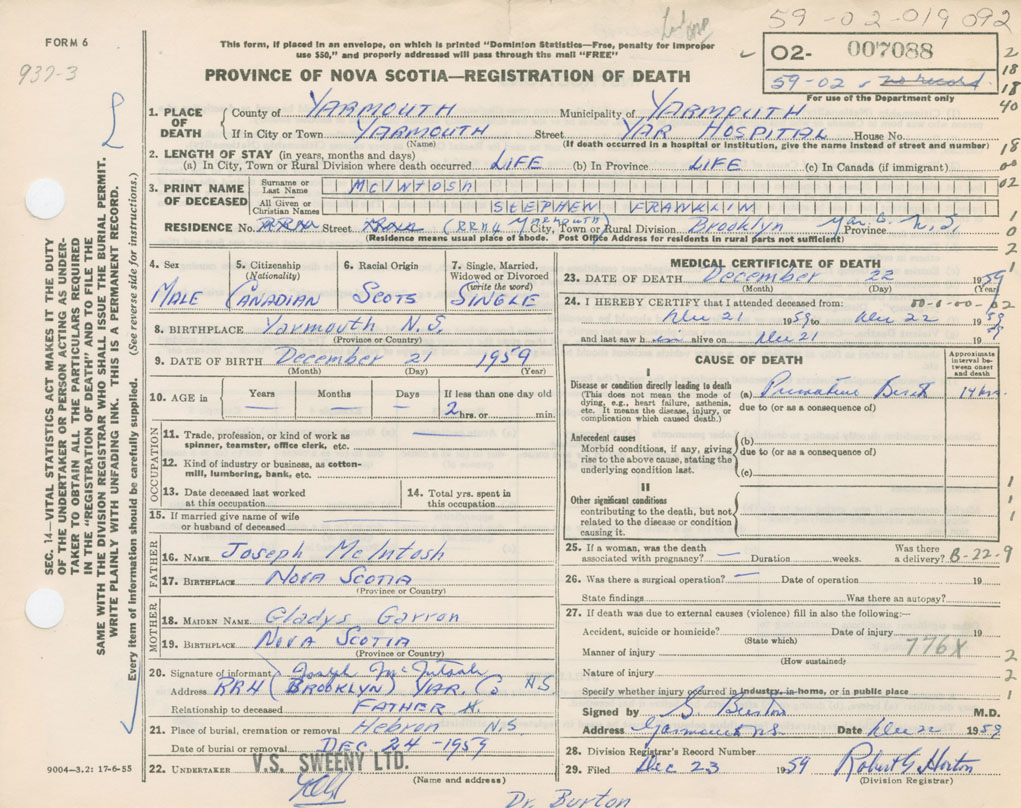 59-02-019 092
FORM 6
937-3
This form, if placed in an envelope, on which is printed "Dominion Statistics—Free, penalty for improper
use $50," and properly addressed will pass through the mail "FREE"
PROVINCE OF NOVA SCOTIA—REGISTRATION OF DEATH
02- 007088
59-02 no record
For use of the Department only
SEC. 14—VITAL STATISTICS ACT MAKES IT THE DUTY
OF THE UNDERTAKER OR PERSON ACTING AS UNDER-
TAKER TO OBTAIN ALL THE PARTICULARS REQUIRED
IN THE "REGISTRATION OF DEATH" AND TO FILE THE
SAME WITH THE DIVISION REGISTRAR WHO SHALL ISSUE THE BURIAL PERMIT.
WRITE PLAINLY WITH UNFADING INK. THIS IS A PERMANENT RECORD.
Every item of information should be carefully supplied. (See reverse side for instructions.)
1. PLACE OF DEATH
County of YARMOUTH Municipality of YARMOUTH
If in City or Town YARMOUTH Street YAR HOSPITAL House No.
(Name) (If death occurred in a hospital or institution, give the name instead of street and number)
2. LENGTH OF STAY (in years, months and days)
(a) In City, Town or Rural Division where death occurred LIFE (b) In Province LIFE (c) In Canada (if immigrant)
3. PRINT NAME OF DECEASED
Surname or Last Name McIntosh
All Given or Christian Names STEPHEN FRANKLIN
RESIDENCE No. Street (RR#4 Yarmouth) City, Town or Rural Division Brooklyn Yar. Co. Province N.S.
(Residence means usual place of abode. Post Office Address for residents in rural parts not sufficient)
4. Sex
MALE
5. Citizenship
(Nationality)
CANADIAN
6. Racial Origin
SCOTS
7. Single, Married,
Widowed or Divorced
(write the word)
SINGLE
8. BIRTHPLACE Yarmouth N.S.
(Province or Country)
9. DATE OF BIRTH December 21 1959
(Month) (Day) (Year)
10. AGE in Years Months Days If less than one day old
2 hrs. or min.
OCCUPATION
11. Trade, profession, or kind of work as
spinner, teamster, office clerk, etc.
12. Kind of industry or business, as cotton-
mill, lumbering, bank, etc.
13. Date deceased last worked
at this occupation
14. Total yrs. spent in
this occupation
15. If married give name of wife
or husband of deceased
FATHER
16. NAME Joseph McIntosh
17. BIRTHPLACE NOVA SCOTIA
(Province or Country)
MOTHER
18. MAIDEN NAME Gladys Garron
19. BIRTHPLACE NOVA SCOTIA
(Province or Country)
20. Signature of informant Joseph McIntosh
Address RR4 (BROOKLYN) YAR. Co N.S.
Relationship to deceased FATHER
21. Place of burial, cremation or removal Hebron N.S
Date of burial or removal DEC 24-1959
22. UNDERTAKER V.S. SWEENY LTD.
(Name and address)
9004—3.2: 17-6-55
Dr. Burton
MEDICAL CERTIFICATE OF DEATH
23. DATE OF DEATH December 22 1959
(Month) (Day) (Year)
24. I HEREBY CERTIFY that I attended deceased from:
Dec 21 1959 to Dec 22 1959
and last saw h im alive on Dec 21 1959
CAUSE OF DEATH
Approximate
interval be-
tween onset
and death
I
Disease or condition directly leading to death
(This does not mean the mode of
dying, e.g., heart failure, asthenia,
etc. It means the disease, injury, or
complication which caused death.)
(a) Premature Birth 14 hrs.
due to (or as a consequence of)
Antecedent causes
Morbid conditions, if any, giving
rise to the above cause, stating the
underlying condition last.
(b)
due to (or as a consequence of)
(c)
II
Other significant conditions
contributing to the death, but not
related to the disease or condition
causing it.
25. If a woman, was the death
associated with pregnancy? Duration weeks. Was there
a delivery? B-22-9
26. Was there a surgical operation? Date of operation 19
State findings Was there an autopsy?
27. If death was due to external causes (violence) fill in also the following:—
Accident, suicide or homicide? Date of injury 19
(State which)
Manner of injury 776X
(How sustained)
Nature of injury
Specify whether injury occurred in industry, in home, or in public place
Signed by G Burton M.D.
Address Yarmouth N.S. Date Dec 22 1959
28. Division Registrar's Record Number
29. Filed Dec 23 1959 Robert G Horton
(Division Registrar)